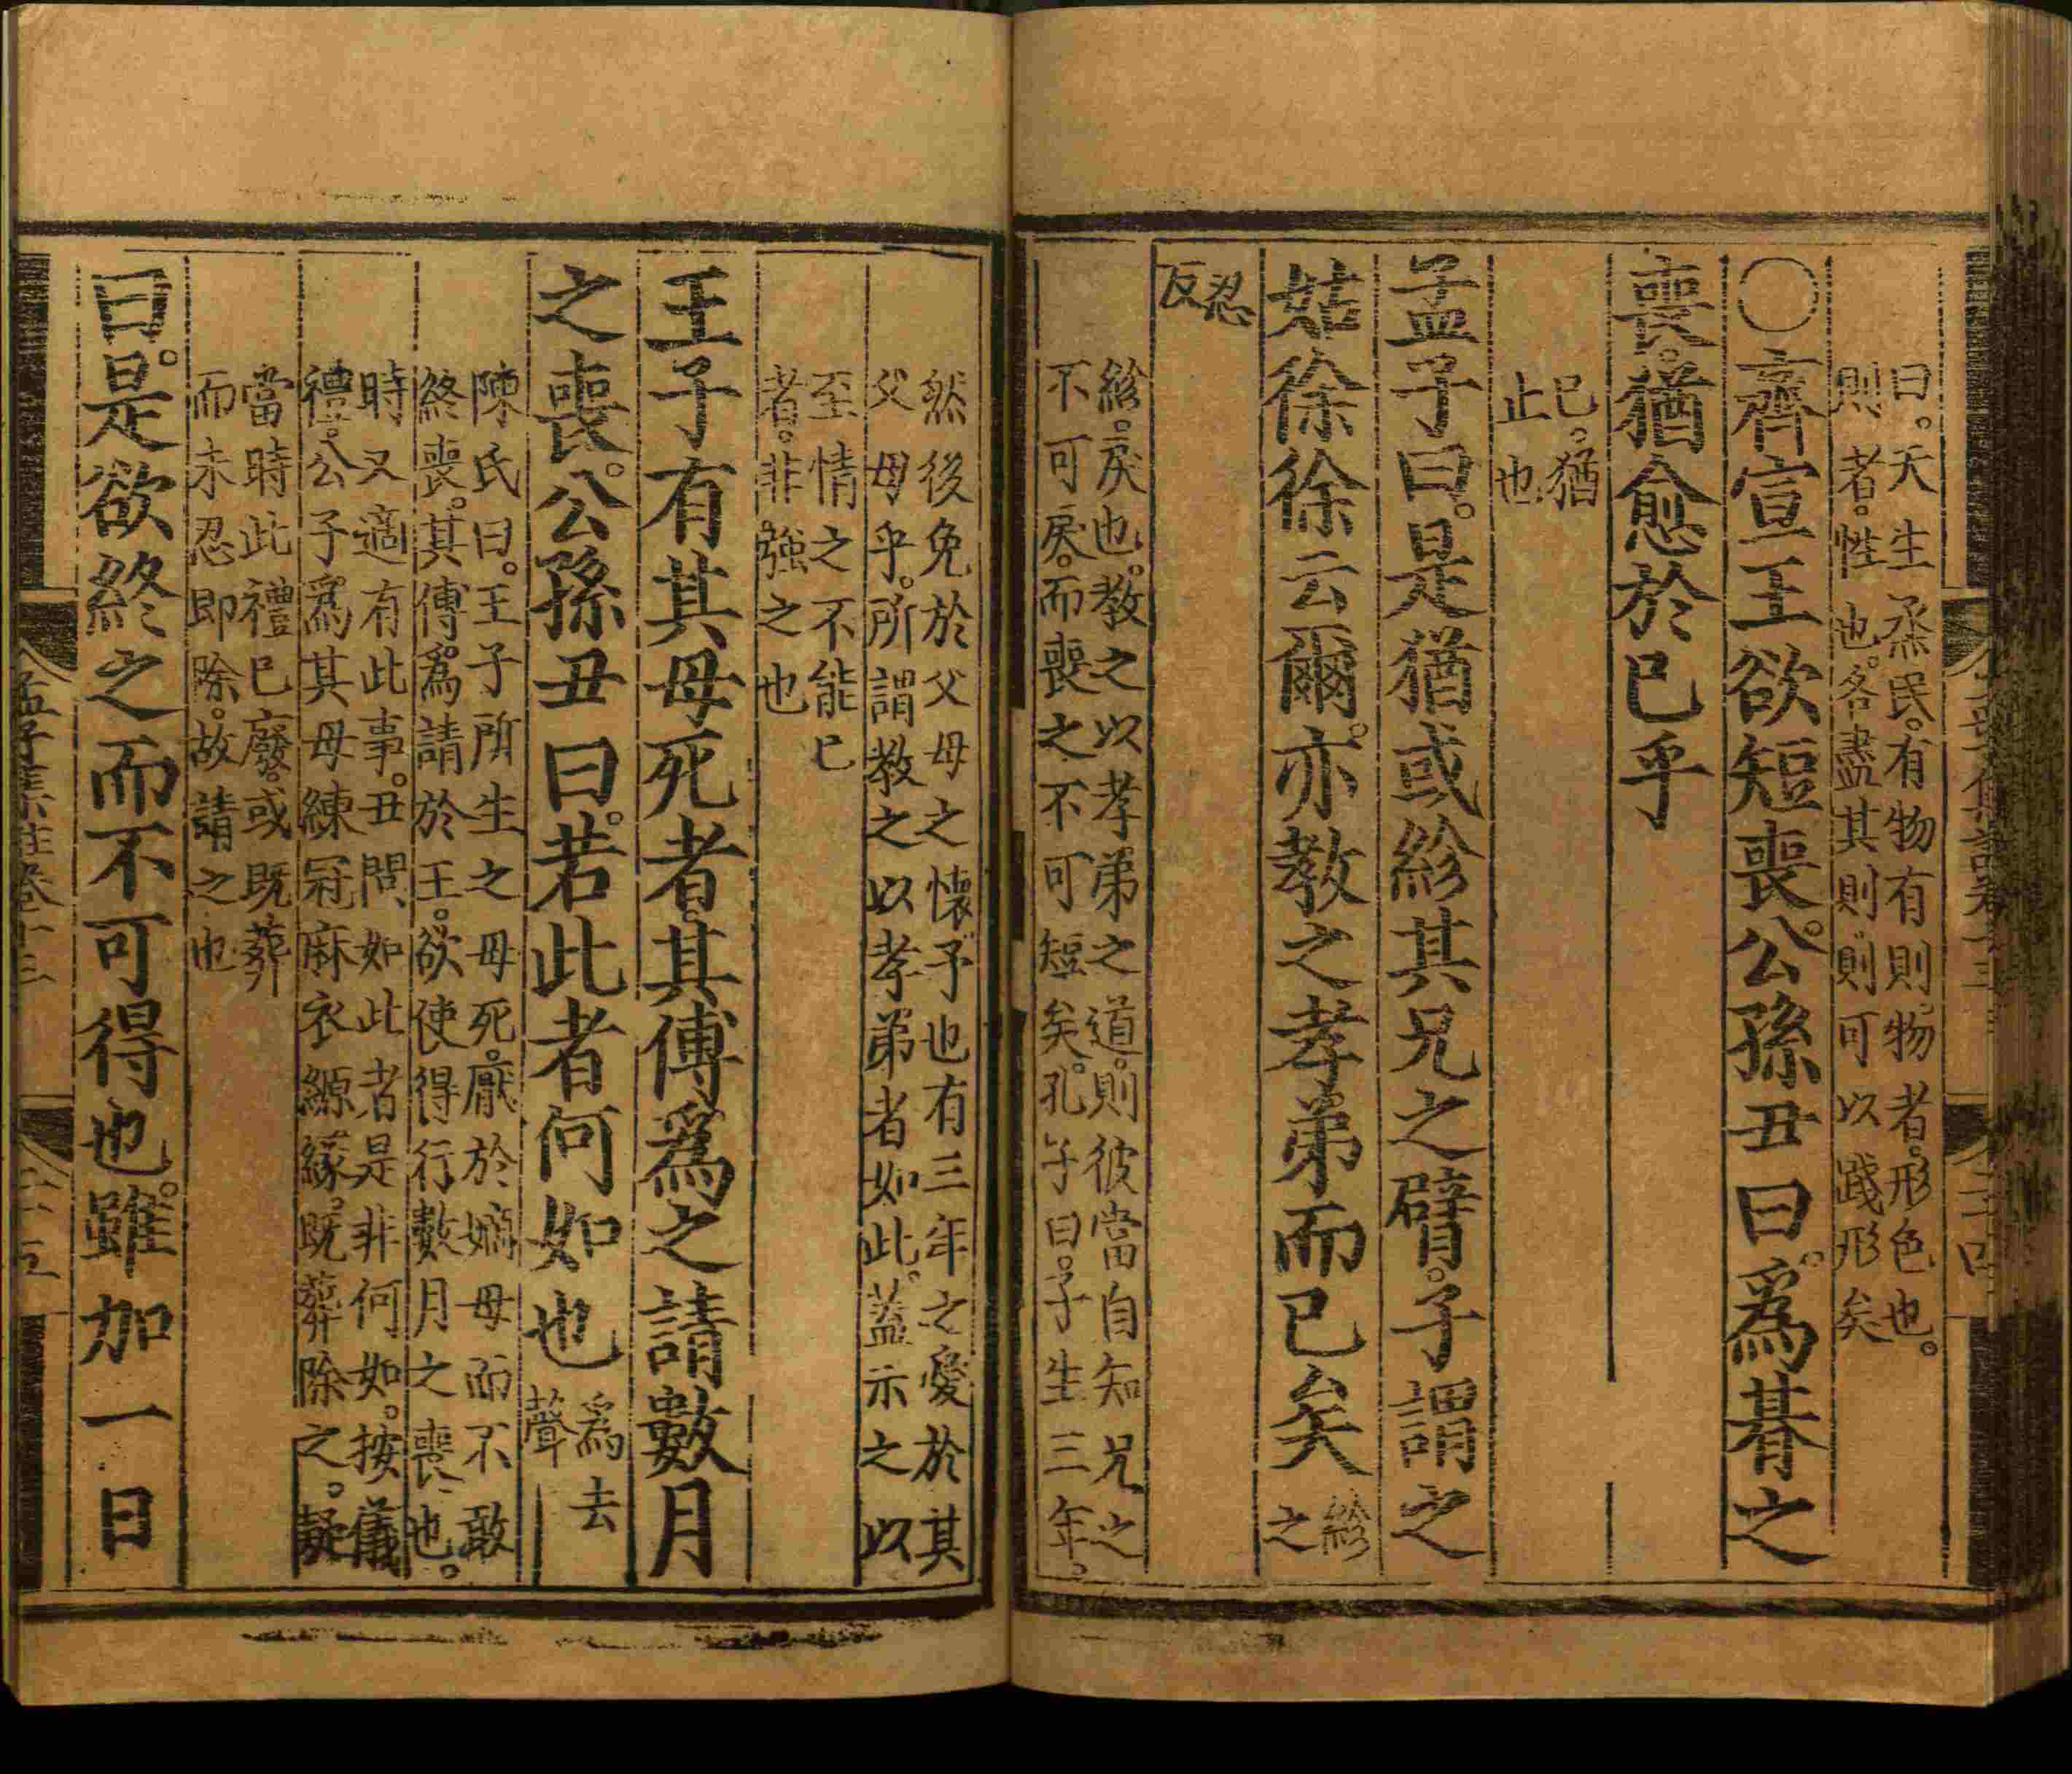 曰。天生烝民。有物有則。物者。形色也。
則者。性也。各盡其則。則可以踐形矣
○齊宣王欲短喪。公孫丑曰。爲朞之
喪。猶愈於已乎
已。猶
止也
孟子曰。是猶或紾其兄之臂。子謂之
姑徐徐云爾。亦教之孝弟而已矣
紾
之
忍
反
紾。戾也。教之以孝弟之道。則彼當自知兄之
不可戾。而喪之不可短矣。孔子曰。子生三年。
然後免於父母之懷。予也有三年之愛於其
父母乎。所謂教之以孝弟者如此。蓋示之以
至情之不能已
者。非強之也
王子有其母死者。其傅爲之請數月
之喪。公孫丑曰。若此者何如也
爲去
聲
陳氏曰。王子所生之母死。厭於嫡母而不敢
終喪。其傅爲請於王。欲使得行數月之喪也。
時又適有此事。丑問如此者是非何如。按儀
禮。公子爲其母練冠麻衣縓緣。既葬除之。疑
當時此禮已廢。或既葬
而未忍即除。故請之也
曰。是欲終之而不可得也。雖加一日
孟子集註卷十三